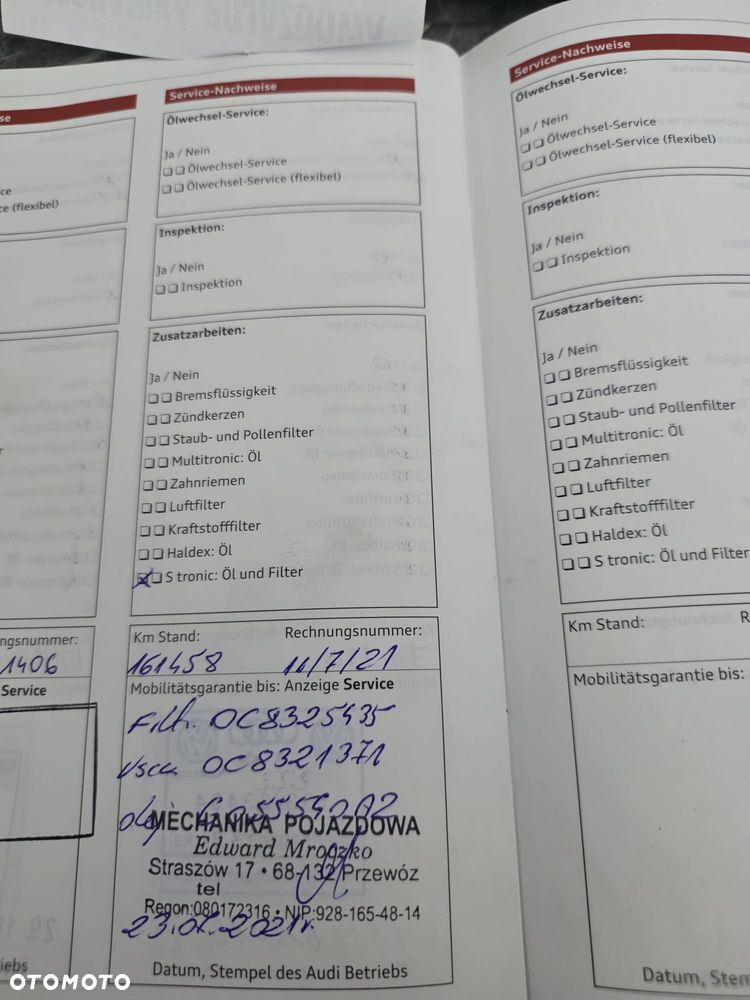 se
ce
ce (flexibel)
r
ngsnummer:
1406
Service
iebs
Service-Nachweise
Ölwechsel-Service:
Ja / Nein
Ölwechsel-Service
Ölwechsel-Service (flexibel)
Inspektion:
Ja / Nein
Inspektion
Zusatzarbeiten:
Ja / Nein
Bremsflüssigkeit
Zündkerzen
Staub- und Pollenfilter
Multitronic: Öl
Zahnriemen
Luftfilter
Kraftstofffilter
Haldex: Öl
S tronic: Öl und Filter
Km Stand: Rechnungsnummer:
161458 11/7/21
Mobilitätsgarantie bis: Anzeige Service
Filtr. OC8325435
OC8321371
olej
MECHANIKA POJAZDOWA
Edward Mroczko
Straszów 17 • 68-132 Przewóz
tel
Regon:080172316 • NIP:928-165-48-14
23.07.2021r.
Datum, Stempel des Audi Betriebs
Service-Nachweise
Ölwechsel-Service:
Ja / Nein
Ölwechsel-Service
Ölwechsel-Service (flexibel)
Inspektion:
Ja / Nein
Inspektion
Zusatzarbeiten:
Ja / Nein
Bremsflüssigkeit
Zündkerzen
Staub- und Pollenfilter
Multitronic: Öl
Zahnriemen
Luftfilter
Kraftstofffilter
Haldex: Öl
S tronic: Öl und Filter
Km Stand: R
Mobilitätsgarantie bis:
Datum, Stem
OTOMOTO